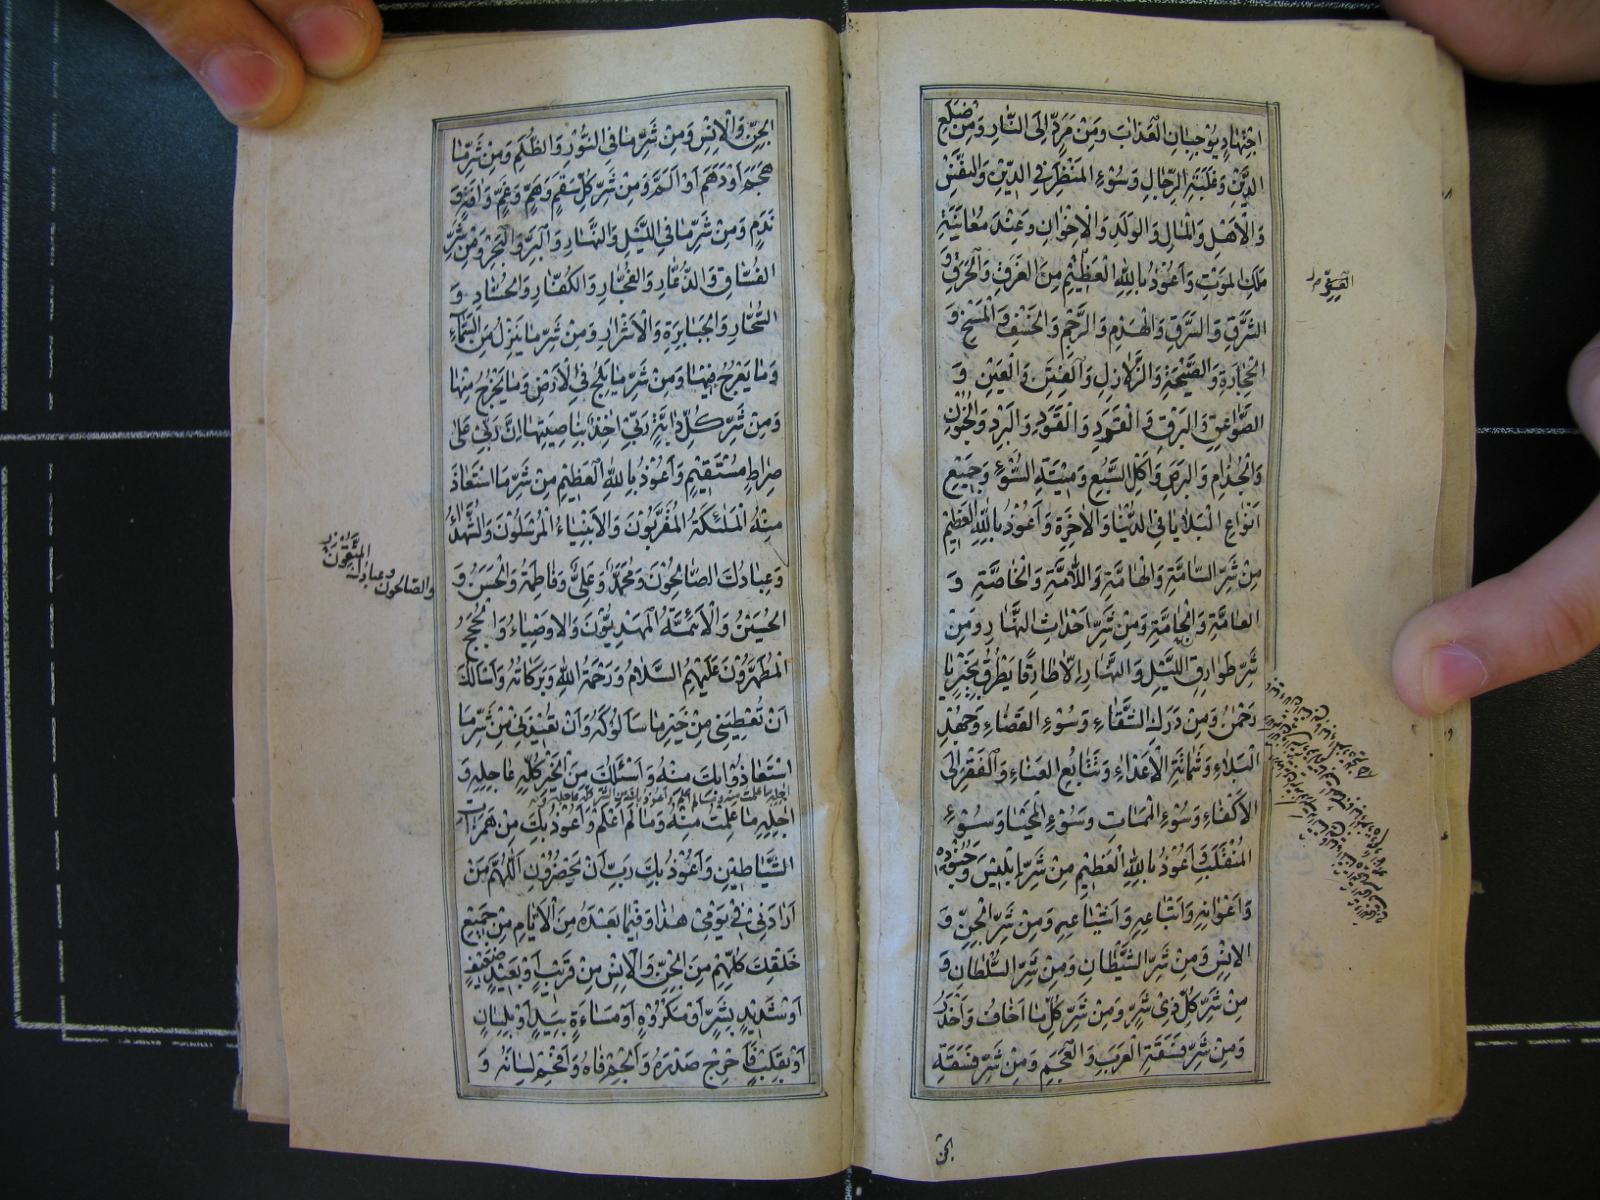 اجْتِهَادٍ يُوجِبَانِ الْعَذَابَ وَمِنْ مَرَدٍّ إِلَى النَّارِ وَمِنْ ضَلَعِ
الدَّيْنِ وَغَلَبَةِ الرِّجَالِ وَسُوءِ الْمَنْظَرِ فِي الدِّينِ وَالنَّفْسِ
وَالْأَهْلِ وَالْمَالِ وَالْوَلَدِ وَالْإِخْوَانِ وَعِنْدَ مُعَايَنَةِ
مَلَكِ الْمَوْتِ وَأَعُوذُ بِاللهِ الْعَظِيمِ مِنَ الْغَرَقِ وَالْحَرَقِ وَ
الشَّرَقِ وَالسَّرَقِ وَالْهَدْمِ وَالرَّجْمِ وَالْخَسْفِ وَالْمَسْخِ وَ
الْحِجَارَةِ وَالصَّيْحَةِ وَالزَّلَازِلِ وَالْفِتَنِ وَالْعَيْنِ وَ
الصَّوَاعِقِ وَالْبَرْقِ وَالْقَوَدِ وَالْقَرَدِ وَالْبَرَدِ وَالْجُنُونِ
وَالْجُذَامِ وَالْبَرَصِ وَأَكْلِ السَّبُعِ وَمِيتَةِ السُّوءِ وَجَمِيعِ
أَنْوَاعِ الْبَلَايَا فِي الدُّنْيَا وَالْآخِرَةِ وَأَعُوذُ بِاللهِ الْعَظِيمِ
مِنْ شَرِّ السَّامَّةِ وَالْهَامَّةِ وَاللَّامَّةِ وَالْخَاصَّةِ وَ
الْعَامَّةِ وَالْحَامَّةِ وَمِنْ شَرِّ أَحْدَاثِ النَّهَارِ وَمِنْ
شَرِّ طَوَارِقِ اللَّيْلِ وَالنَّهَارِ إِلَّا طَارِقًا يَطْرُقُ بِخَيْرٍ يَا
رَحْمٰنُ وَمِنْ دَرَكِ الشَّقَاءِ وَسُوءِ الْقَضَاءِ وَجَهْدِ
الْبَلَاءِ وَشَمَاتَةِ الْأَعْدَاءِ وَتَتَابُعِ الْعَنَاءِ وَالْفَقْرِ إِلَى
الْأَكْفَاءِ وَسُوءِ الْمَمَاتِ وَسُوءِ الْمَحْيَا وَسُوءِ
الْمُنْقَلَبِ وَأَعُوذُ بِاللهِ الْعَظِيمِ مِنْ شَرِّ إِبْلِيسَ وَجُنُودِهِ
وَأَعْوَانِهِ وَأَتْبَاعِهِ وَأَشْيَاعِهِ وَمِنْ شَرِّ الْجِنِّ وَ
الْإِنْسِ وَمِنْ شَرِّ الشَّيْطَانِ وَمِنْ شَرِّ السُّلْطَانِ وَ
مِنْ شَرِّ كُلِّ ذِي شَرٍّ وَمِنْ شَرِّ كُلِّ مَا أَخَافُ وَأَحْذَرُ
وَمِنْ شَرِّ فَسَقَةِ الْعَرَبِ وَالْعَجَمِ وَمِنْ شَرِّ فَسَقَةِ
الجن
الْجِنِّ وَالْإِنْسِ وَمِنْ شَرِّ مَا فِي النُّورِ وَالظُّلَمِ وَمِنْ شَرِّ مَا
هَجَمَ أَوْ دَهَمَ أَوْ أَلَمَّ وَمِنْ شَرِّ كُلِّ سُقْمٍ وَهَمٍّ وَغَمٍّ وَآفَةٍ وَ
نَدَمٍ وَمِنْ شَرِّ مَا فِي اللَّيْلِ وَالنَّهَارِ وَالْبَرِّ وَالْبَحْرِ وَمِنْ شَرِّ
الْفُسَّاقِ وَالدُّعَّارِ وَالْفُجَّارِ وَالْكُفَّارِ وَالْحُسَّادِ وَ
السُّحَّارِ وَالْجَبَابِرَةِ وَالْأَشْرَارِ وَمِنْ شَرِّ مَا يَنْزِلُ مِنَ السَّمَاءِ
وَمَا يَعْرُجُ فِيهَا وَمِنْ شَرِّ مَا يَلِجُ فِي الْأَرْضِ وَمَا يَخْرُجُ مِنْهَا
وَمِنْ شَرِّ كُلِّ دَابَّةٍ رَبِّي آخِذٌ بِنَاصِيَتِهَا إِنَّ رَبِّي عَلَى
صِرَاطٍ مُسْتَقِيمٍ وَأَعُوذُ بِاللهِ الْعَظِيمِ مِنْ شَرِّ مَا اسْتَعَاذَ
مِنْهُ الْمَلٰئِكَةُ الْمُقَرَّبُونَ وَالْأَنْبِيَاءُ الْمُرْسَلُونَ وَالشُّهَدَاءُ
وَعِبَادُكَ الصَّالِحُونَ وَمُحَمَّدٌ وَعَلِيٌّ وَفَاطِمَةُ وَالْحَسَنُ وَ
الْحُسَيْنُ وَالْأَئِمَّةُ الْمَهْدِيُّونَ وَالْأَوْصِيَاءُ وَالْحُجَجُ
الْمُطَهَّرُونَ عَلَيْهِمُ السَّلَامُ وَرَحْمَةُ اللهِ وَبَرَكَاتُهُ وَأَسْأَلُكَ
أَنْ تُعْطِيَنِي مِنْ خَيْرِ مَا سَأَلُوكَهُ وَأَنْ تُعِيذَنِي مِنْ شَرِّ مَا
اسْتَعَاذُوا بِكَ مِنْهُ وَأَسْئَلُكَ مِنَ الْخَيْرِ كُلِّهِ عَاجِلِهِ وَ
آجِلِهِ مَا عَلِمْتُ مِنْهُ وَمَا لَمْ أَعْلَمْ وَأَعُوذُ بِكَ مِنْ هَمَزَاتِ
الشَّيَاطِينِ وَأَعُوذُ بِكَ رَبِّ أَنْ يَحْضُرُونِ اَللّٰهُمَّ مَنْ
أَرَادَنِي فِي يَوْمِي هٰذَا وَفِيمَا بَعْدَهُ مِنَ الْأَيَّامِ مِنْ جَمِيعِ
خَلْقِكَ كُلِّهِمْ مِنَ الْجِنِّ وَالْإِنْسِ مِنْ قَرِيبٍ أَوْ بَعِيدٍ ضَعِيفٍ
أَوْ شَدِيدٍ بِشَرٍّ أَوْ مَكْرُوهٍ أَوْ مَسَاءَةٍ بِيَدٍ أَوْ بِلِسَانٍ
أَوْ بِقَلْبٍ فَأَحْرِجْ صَدْرَهُ وَأَلْجِمْ فَاهُ وَأَفْحِمْ لِسَانَهُ وَ
المتقون
والصالحون وعبادك